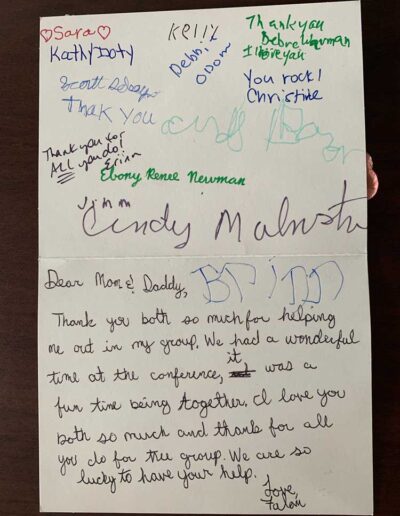 ♡Sara♡
Kathy Doty
Kelly
Debbi
Odom
Thank you
Debra Newman
I love yah
You rock!
Christine
Scott
Thank you
Thank you for
ALL you do!
Erin
Ebony Renee Newman
Jimm
Cindy
Brian
Dear Mom & Daddy,
Thank you both so much for helping
me out in my group. We had a wonderful
time at the conference, it was a
fun time being together. I love you
both so much and thank for all
you do for the group. We are so
lucky to have your help.
Love,
Falon